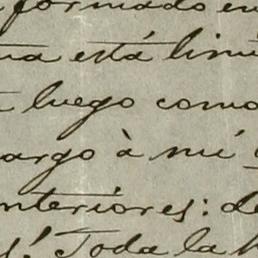 formado en
na está limi
luego como
argo à mi
nteriores: de
s! Toda la h